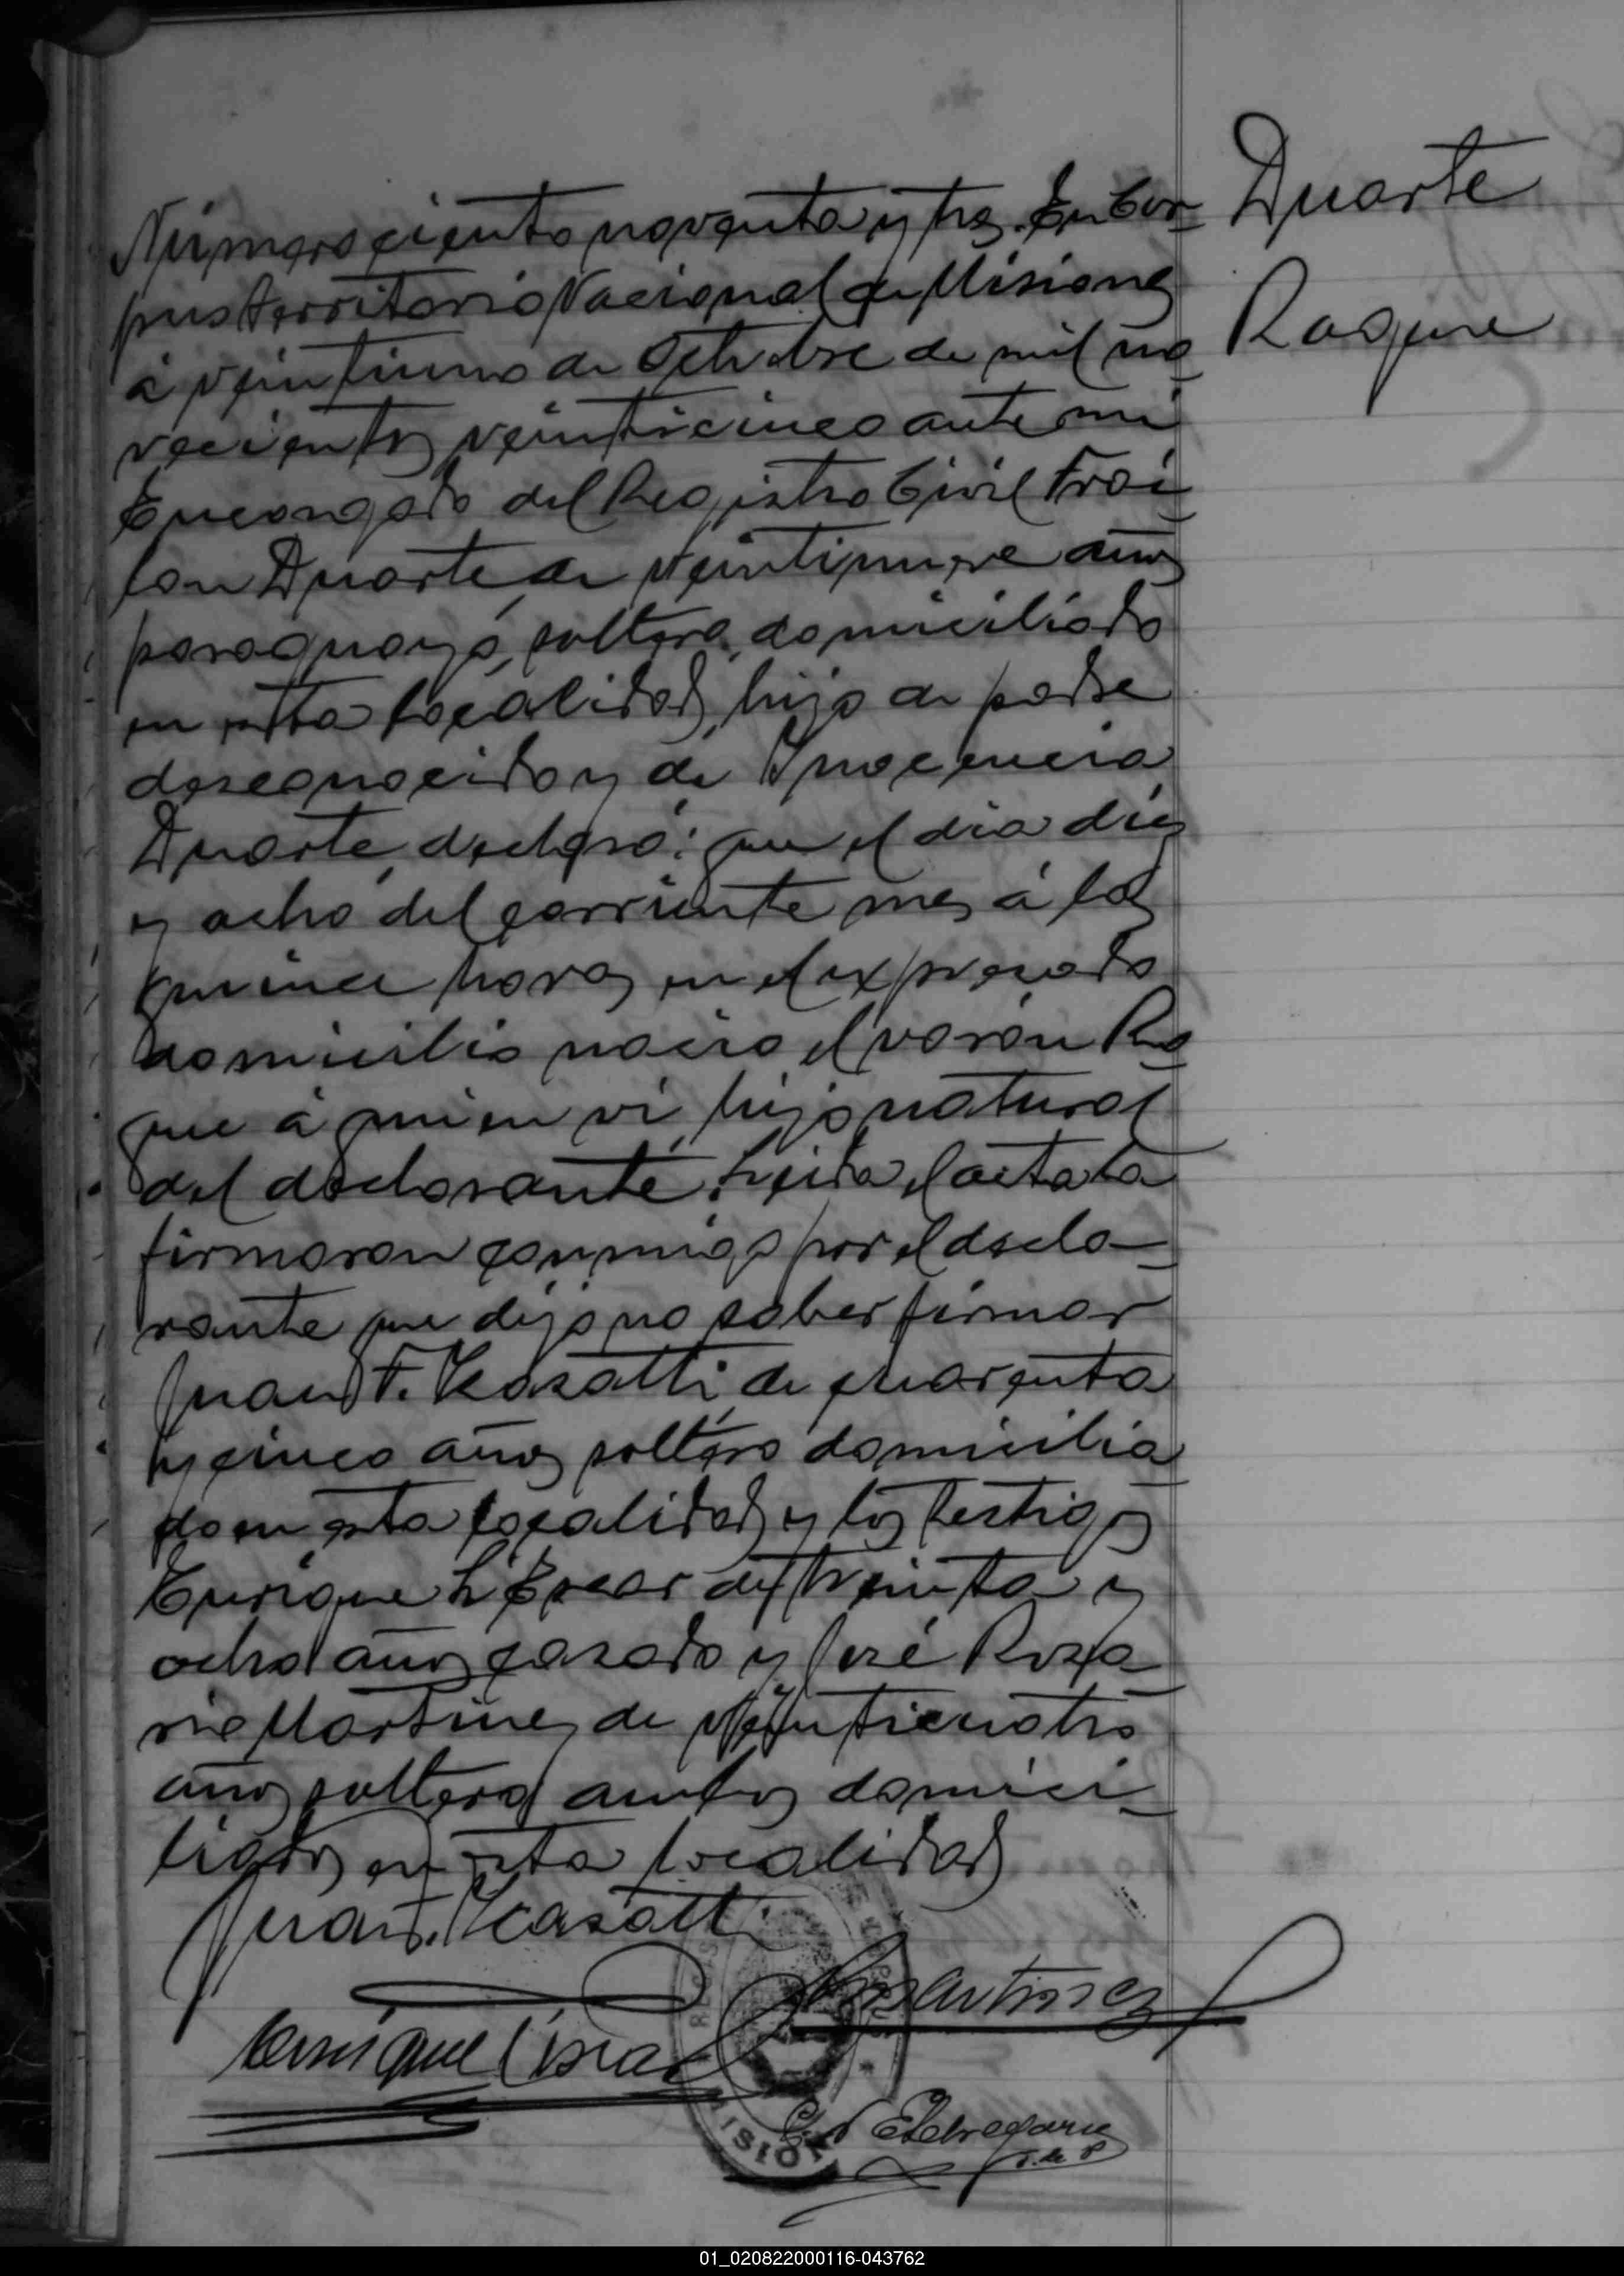 Duarte
Roque
Número ciento noventa y tres. En Cor-
pus territorio Nacional de Misiones
á veintiuno de Octubre de mil no-
vecientos veinticinco ante mi
Encargado del Registro Civil Froi-
lan Duarte de veintinueve años
paraguayo, soltero, domiciliado
en esta localidad, hijo de padre
desconocido y de Ynocencia
Duarte, declaró: que el dia diez
y ocho del corriente mes á las
quince horas en el expresado
domicilio nació el varón Ro-
que á quien vi, hijo natural
del declarante. Leida el acta la
firmaron conmigo por el decla-
rante que dijo no saber firmar
Juan F. Kasatti de cuarenta
y cinco años soltero domicilia-
do en esta localidad y los testigos
Enrique L. de treinta y
ocho años casado y José Rosa-
rio Martinez de veinticuatro
años soltero ambos domici-
liados en esta localidad
Juan F. Kasatti
Martinez
Enrique
Etchegaray
J. de P.
MISION
01_020822000116-043762